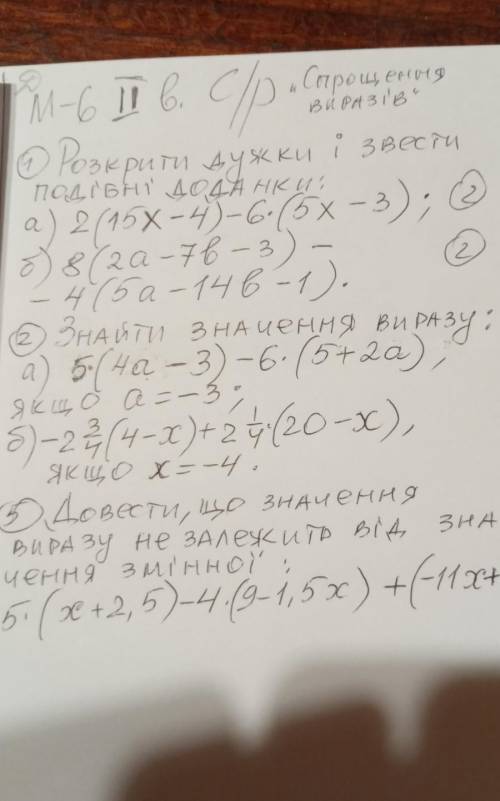 М-6 II в. С/р "Спрощення
виразів"
① Розкрити дужки і звести
подібні доданки:
а) 2(15х-4)-6·(5х-3); ②
б) 8(2а-7в-3)- ②
-4(5а-14в-1).
② Знайти значення виразу:
а) 5·(4а-3)-6·(5+2а),
якщо а=-3;
б) -2 3/4(4-х)+2 1/4·(20-х),
якщо х=-4.
③ Довести, що значення
виразу не залежить від зна
чення змінної:
5·(х+2,5)-4·(9-1,5х)+(-11х+